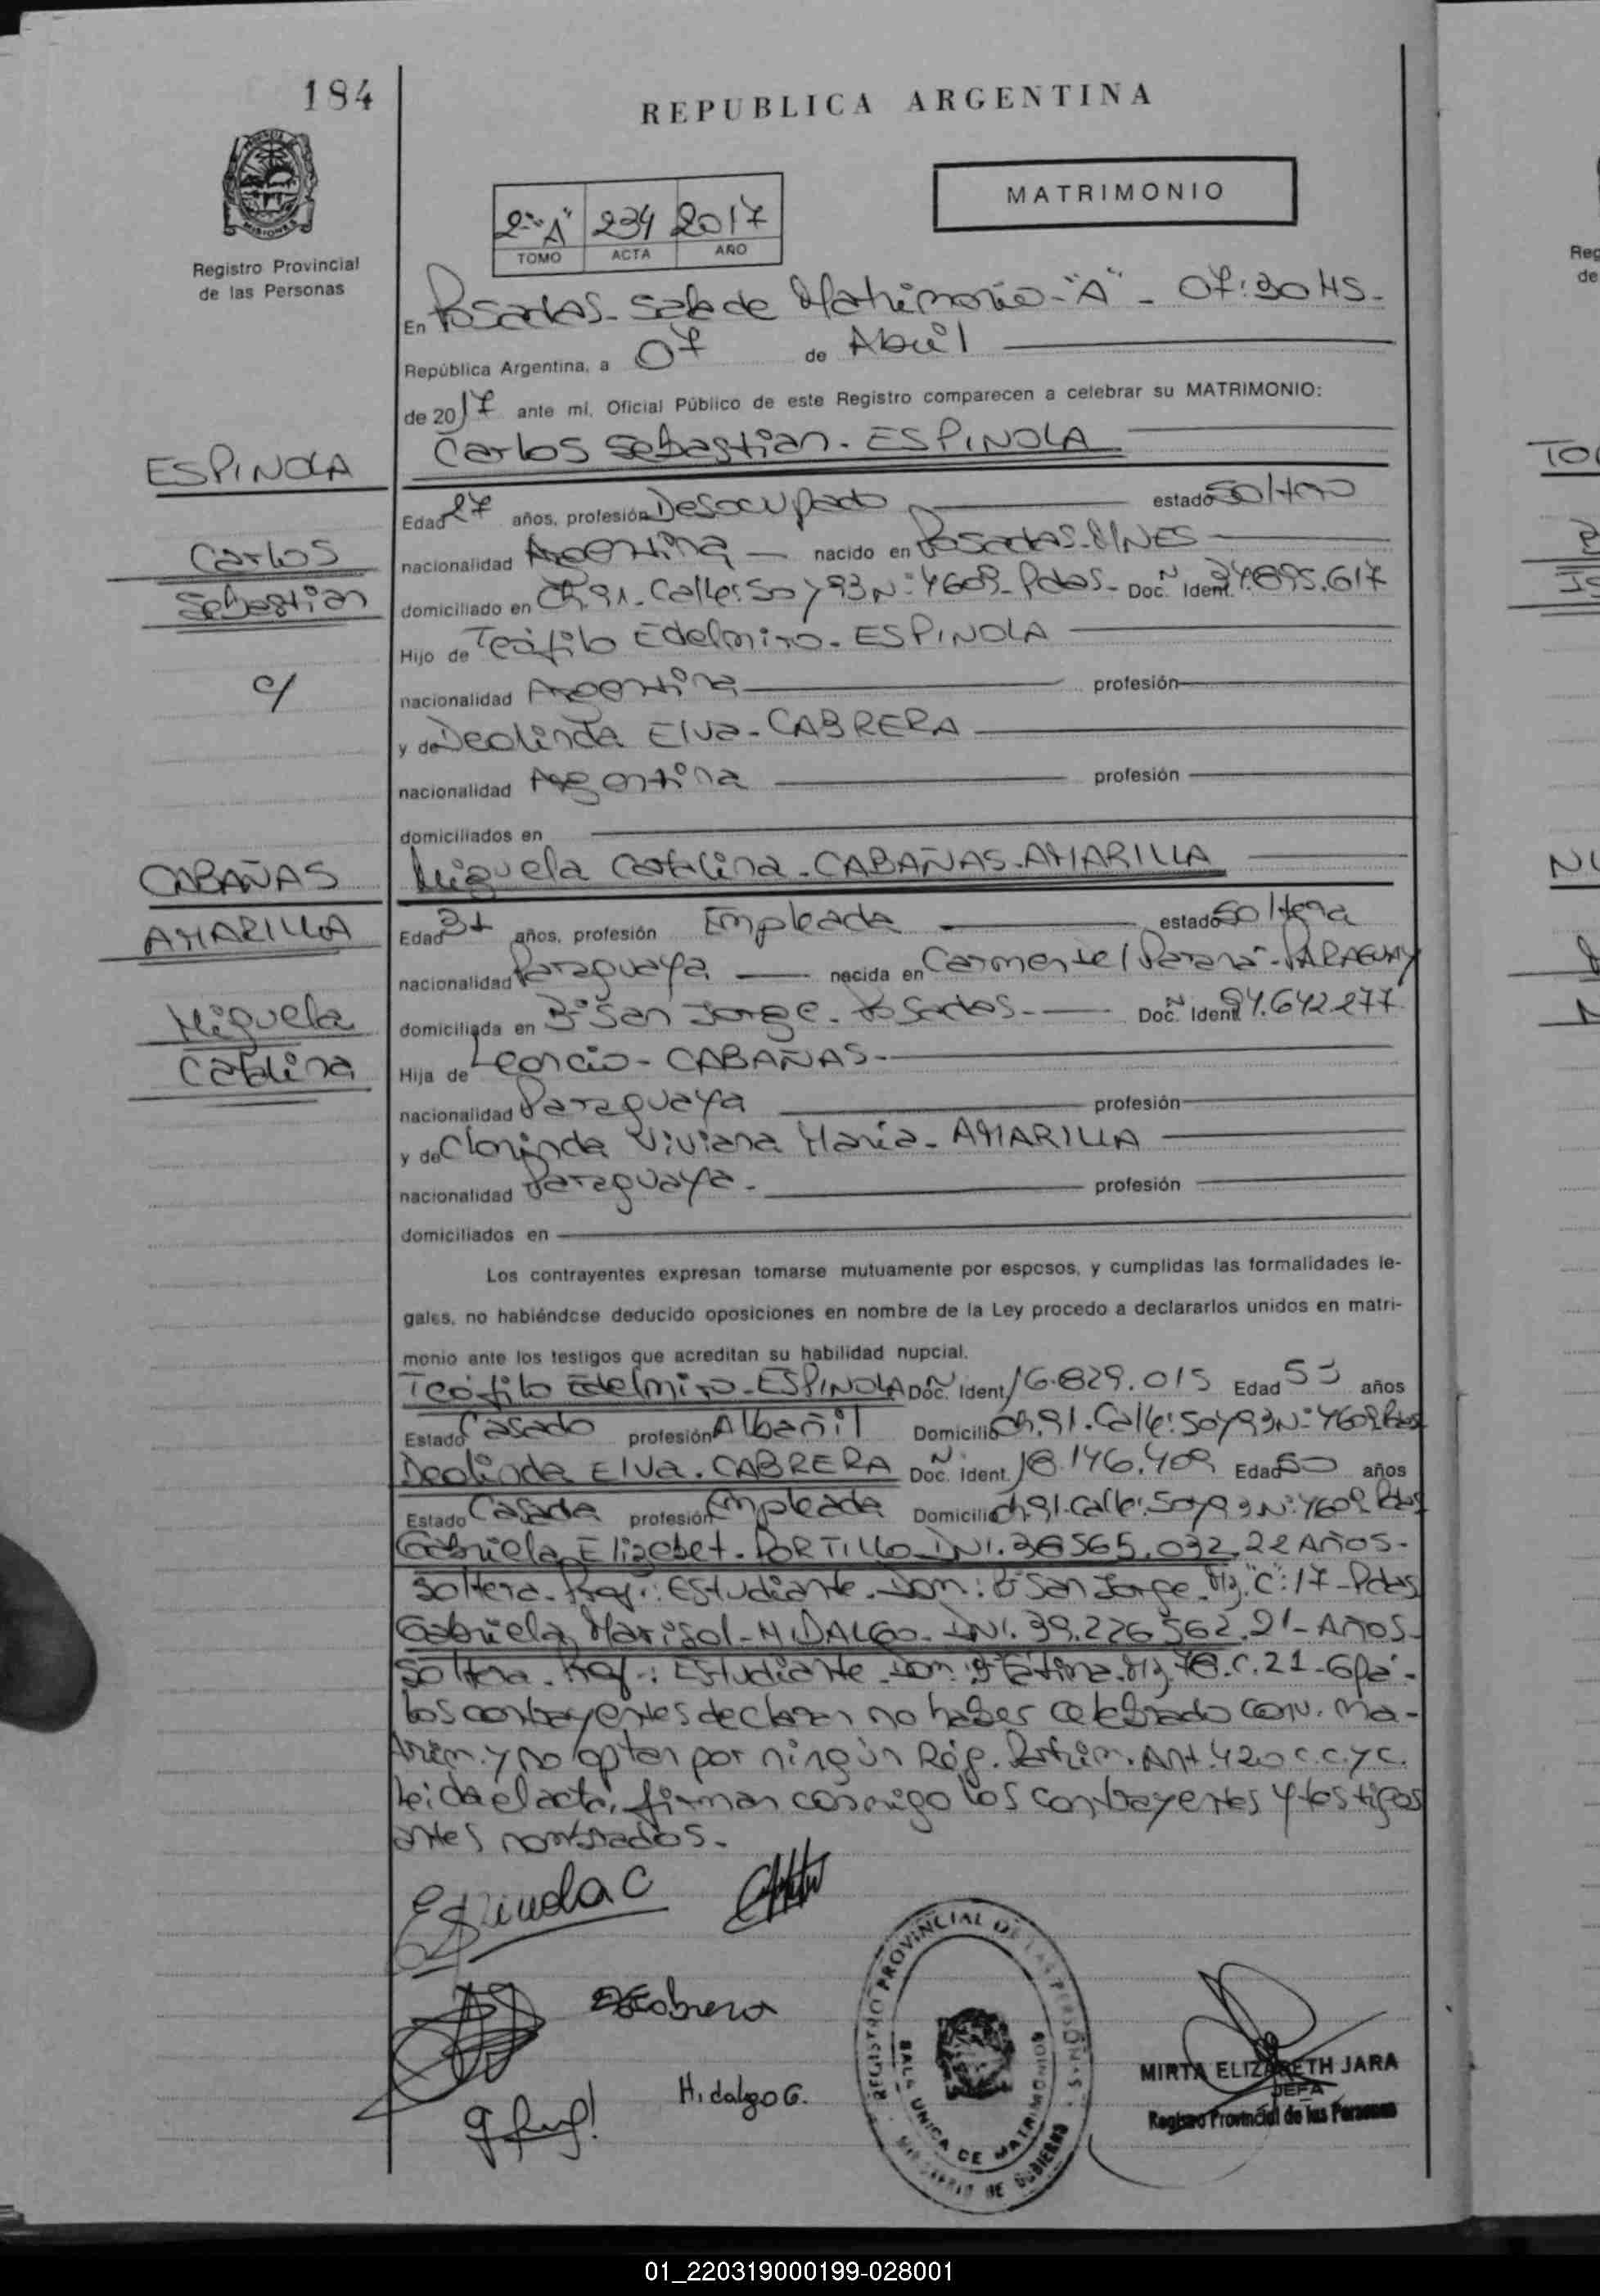 184
REPUBLICA ARGENTINA
MATRIMONIO
2º "A" 234 2017
TOMO ACTA AÑO
Registro Provincial
de las Personas
En Posadas - Sala de Matrimonio - "A" - 07:30 HS -
República Argentina, a 07 de Abril
de 2017 ante mí, Oficial Público de este Registro comparecen a celebrar su MATRIMONIO:
ESPINOLA
Carlos Sebastian - ESPINOLA
Edad 27 años, profesión Desocupado estado Soltero
Carlos
nacionalidad Argentina nacido en Posadas - MNES
Sebastian
domiciliado en Ch. 91 - Calle: 50 y 93 Nº 4609 - Pdas - Doc. N Ident. 34.895.617
Hijo de Teófilo Edelmiro - ESPINOLA
c/
nacionalidad Argentina profesión
y de Deolinda Elva - CABRERA
nacionalidad Argentina profesión
domiciliados en
CABAÑAS
Miguela Catalina - CABAÑAS - AMARILLA
AMARILLA
Edad 31 años, profesión Empleada estado Soltera
nacionalidad Paraguaya nacida en Carmen del Paraná - PARAGUAY
Miguela
domiciliada en Bº San Jorge - Posadas - Doc. N Ident. 94.642.277
Catalina
Hija de Leoncio - CABAÑAS -
nacionalidad Paraguaya profesión
y de Clorinda Viviana María - AMARILLA
nacionalidad Paraguaya - profesión
domiciliados en
Los contrayentes expresan tomarse mutuamente por esposos, y cumplidas las formalidades le-
gales, no habiéndose deducido oposiciones en nombre de la Ley procedo a declararlos unidos en matri-
monio ante los testigos que acreditan su habilidad nupcial.
Teófilo Edelmiro - ESPINOLA Doc. N Ident. 16.829.015 Edad 53 años
Estado Casado profesión Albañil Domicilio Ch. 91. Calle: 50 y 93 Nº 4609 Pdas
Deolinda Elva - CABRERA Doc. N Ident. 18.146.409 Edad 50 años
Estado Casada profesión Empleada Domicilio Ch. 91. Calle: 50 y 93 Nº 4609 Pdas
Gabriela Elizabet - PORTILLO - DNI. 38.565.032. 22 Años -
Soltera - Prof.: Estudiante - Dom: Bº San Jorge - Mz. "C": 17 - Pdas
Gabriela Marisol - HIDALGO - DNI. 39.226.562. 21 - Años -
Soltera - Prof.: Estudiante - Dom: Bº Fátima. Mz. 78. C. 21 - Gpá -
Los contrayentes declaran no haber celebrado conv. ma-
trim. y no optan por ningún Rég. Patrim. Art. 420 C.C.yC.
Leida el acta, firman conmigo los contrayentes y testigos
antes nombrados -
Espinola C
Cabrera
Hidalgo G.
REGISTRO PROVINCIAL DE LAS PERSONAS
SALA UNICA DE MATRIMONIOS
MINISTERIO DE GOBIERNO
MIRTA ELIZABETH JARA
JEFA
Registro Provincial de las Personas
01_220319000199-028001